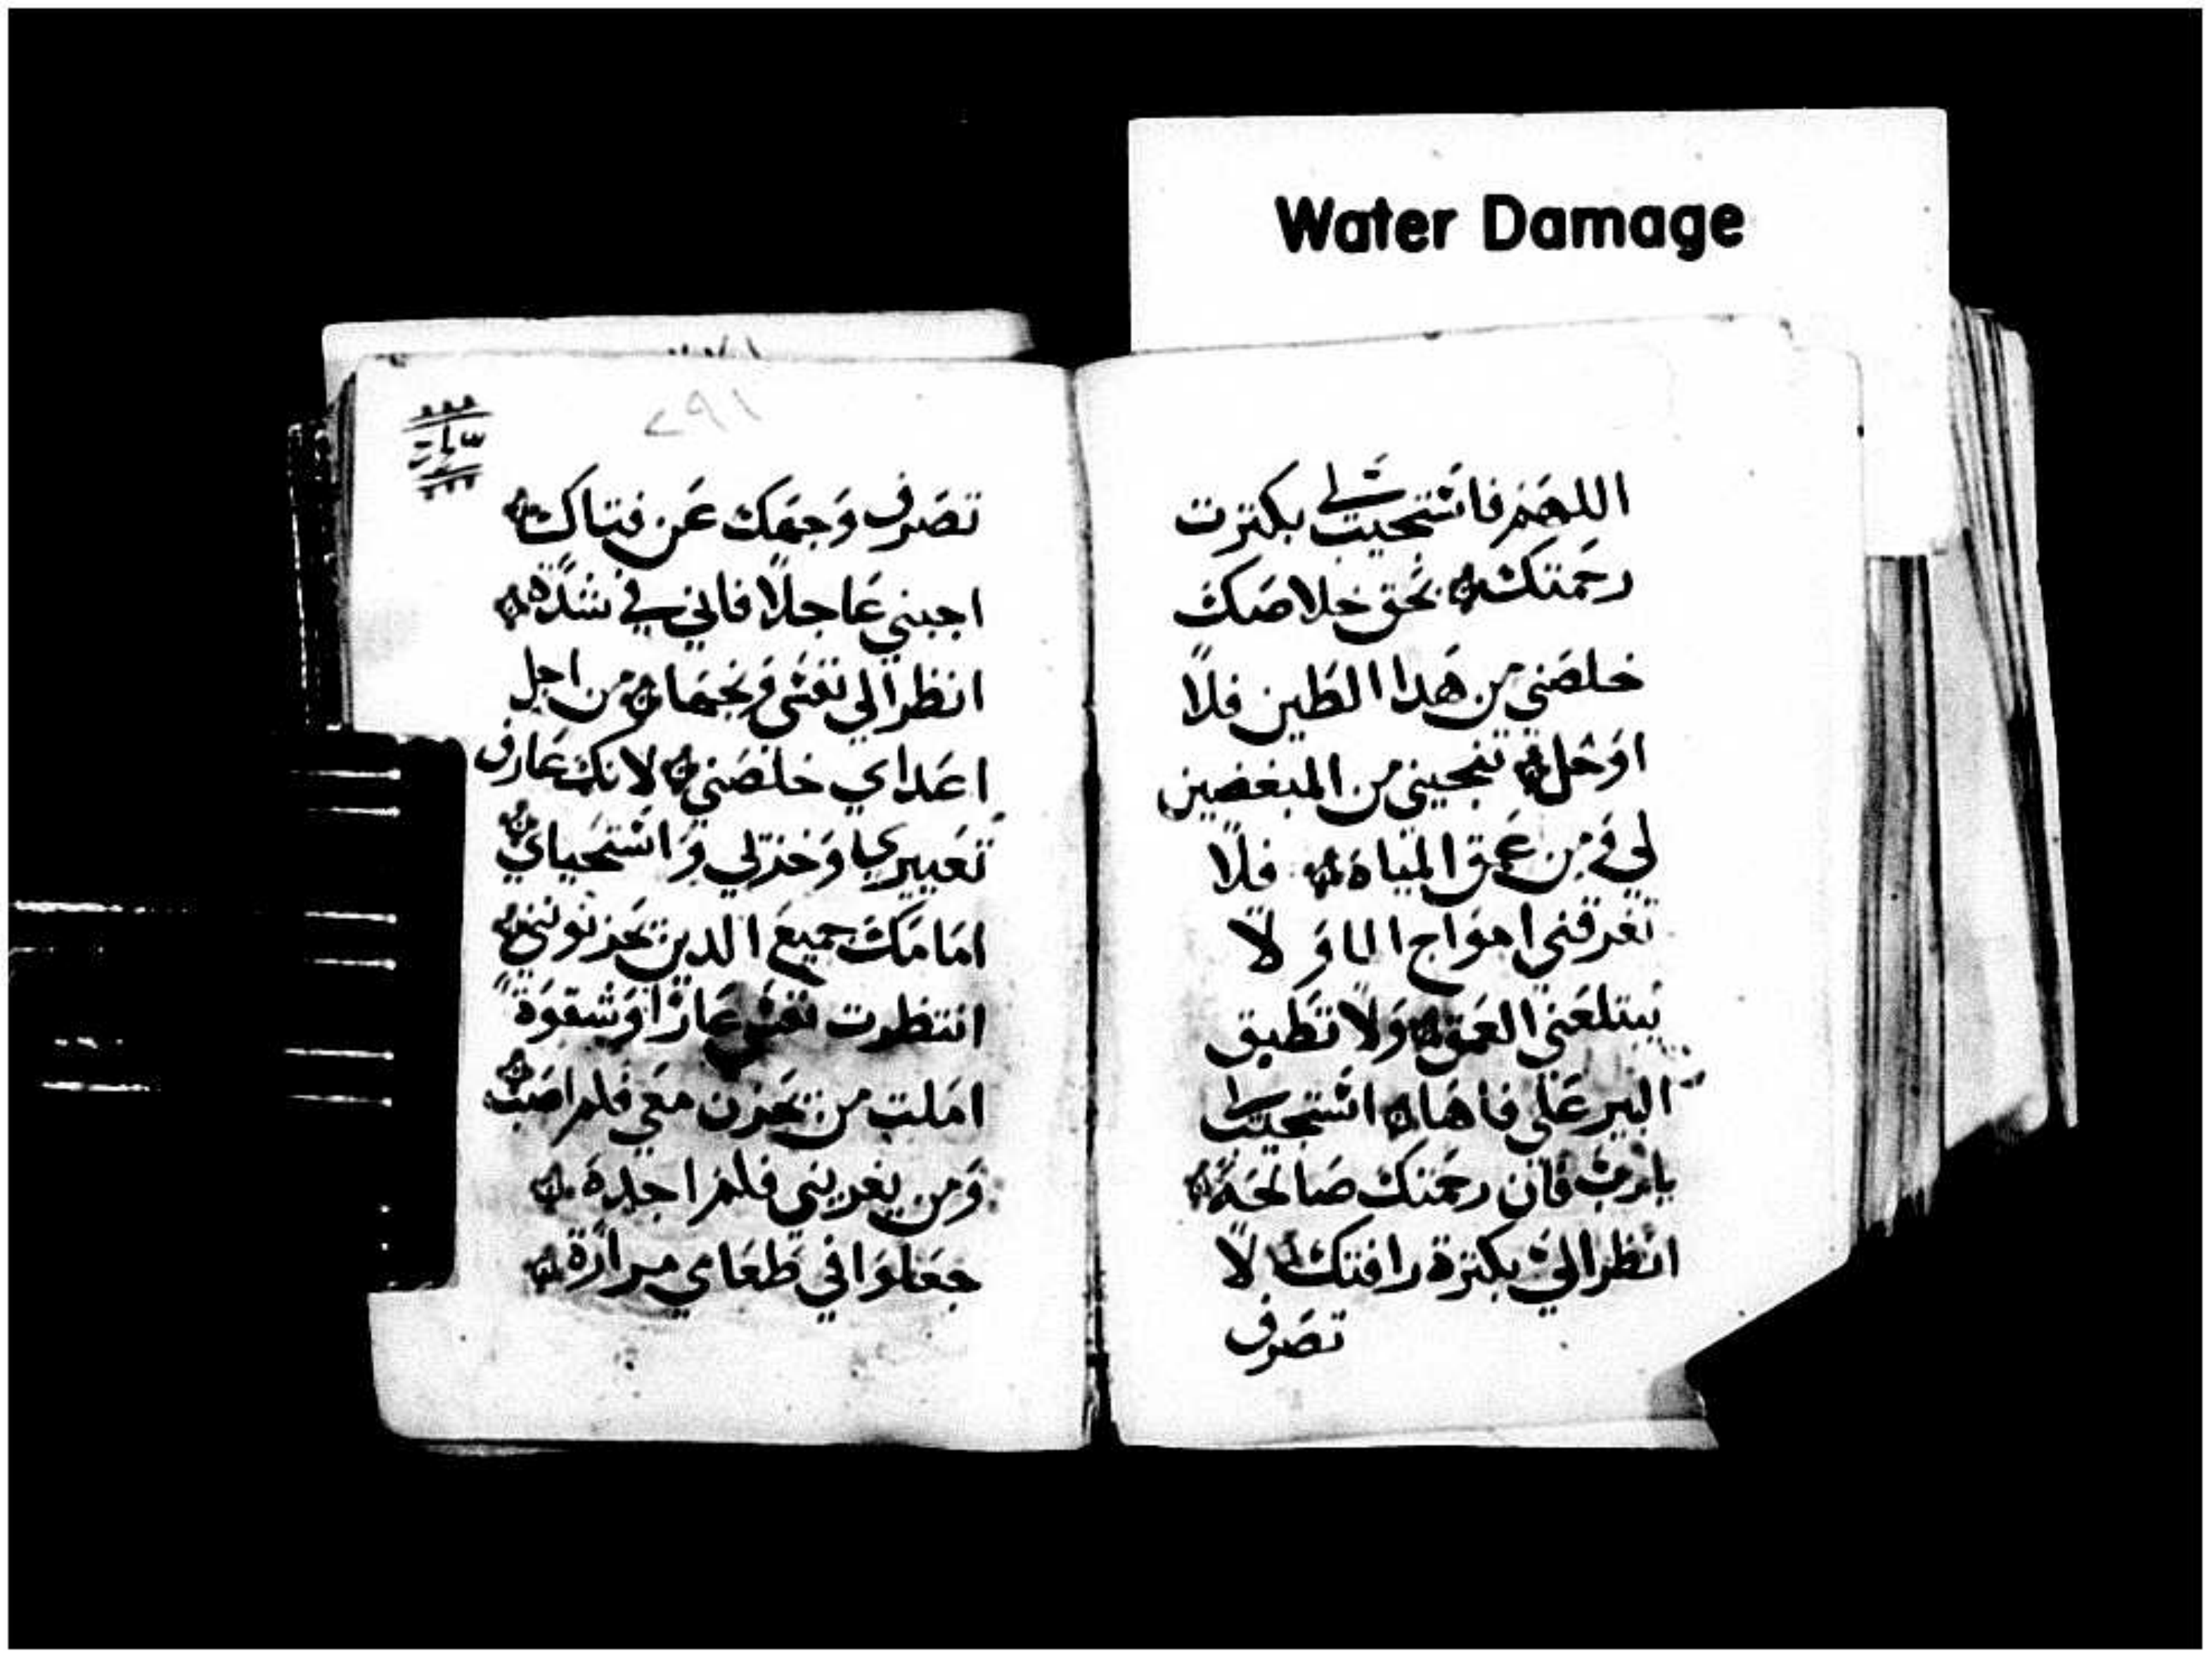 Water Damage
اللهم فاستجيب لي بكترت
رحمتك بحق خلاصك
خلصني من هدا الطين فلا
اوحل تنجيني من المبغضين
لي ومن عمق المياه فلا
تغرقني امواج الما ولا
يبتلعني العمق ولا تطبق
البير علي فاها استجيب لي
يارب فان رحمتك صالحة
انظر الي بكترة رافتك لا
تصرف
٢٩١
تصرف وجهك عن فتاك
اجبني عاجلا فاني في شدة
انظر الي نفسي ونجها ومن اجل
اعداي خلصني لانك عارف
تعييري وخزيي واستحياي
امامك جميع الدين يحزنونني
انتظرت نفسي عارا وشقوة
املت من يحزن معي فلم اصب
ومن يعزيني فلم اجده
جعلوا في طعامي مرارة